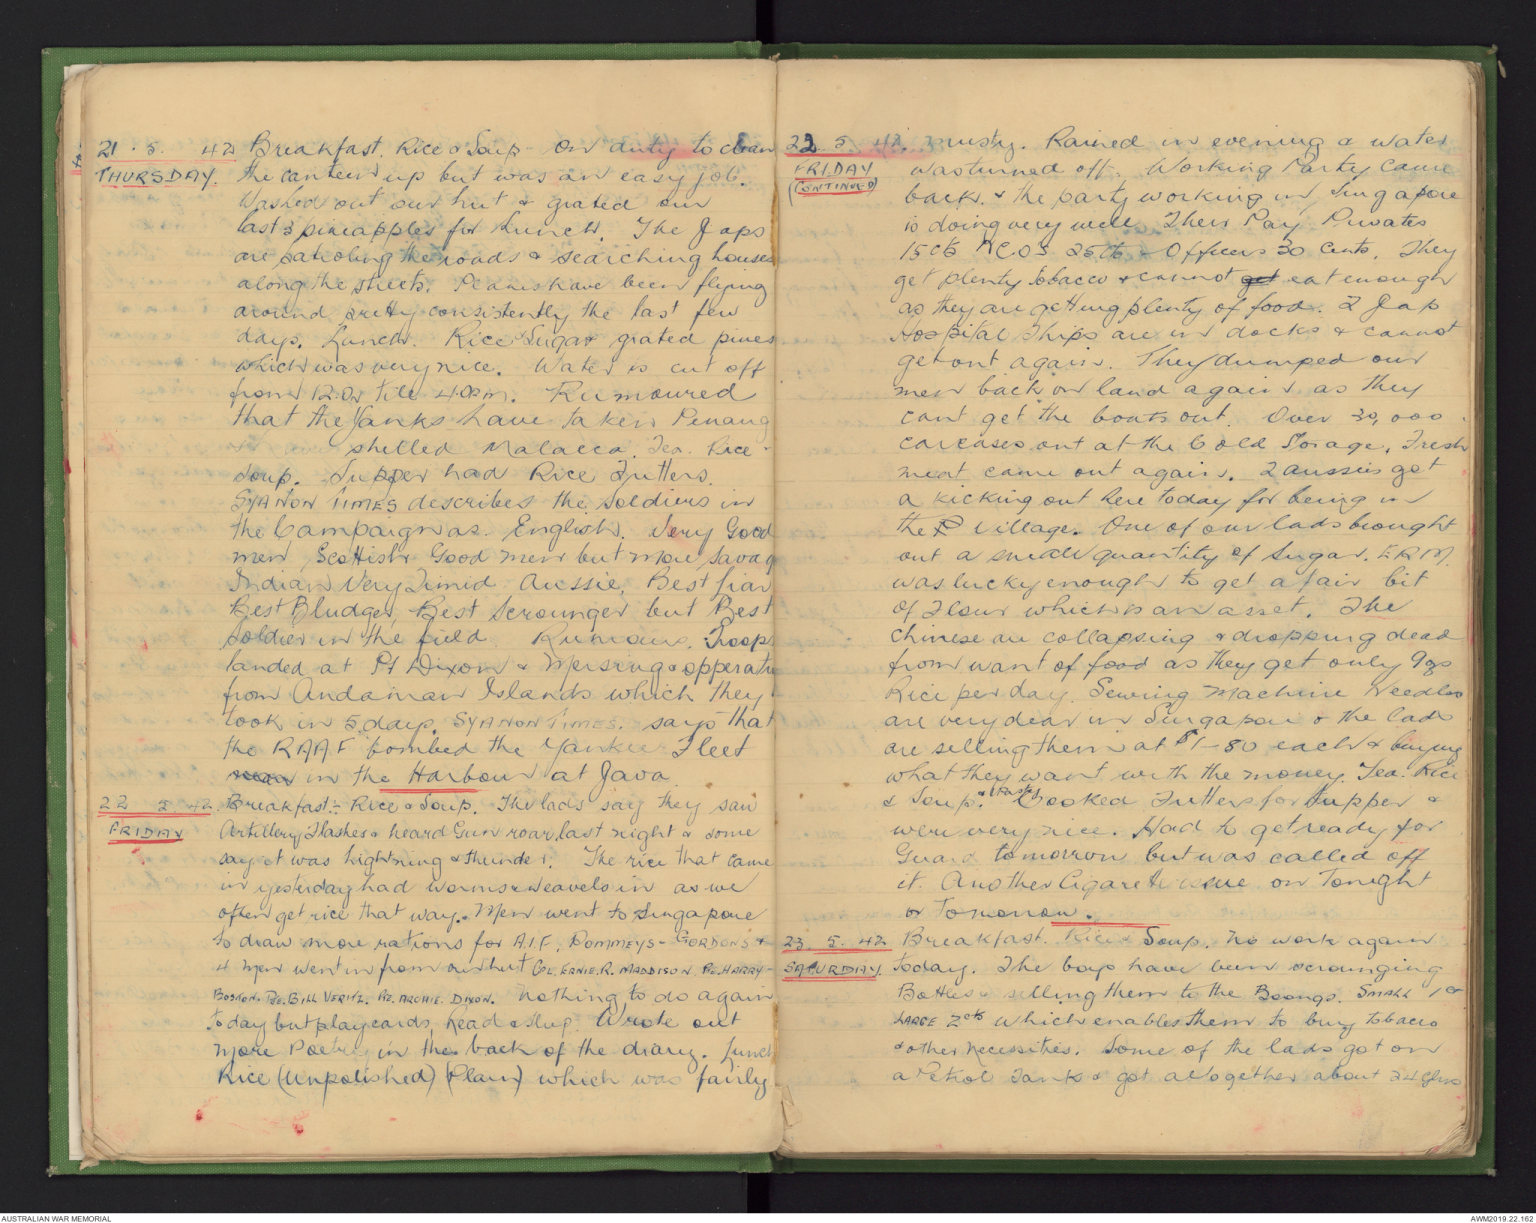 21. 5. 42 Breakfast. Rice & Soup - On duty to clean
THURSDAY. the canteen up but was an easy job.
Washed out our hut & grated our
last 3 pineapples for Lunch. The Japs
are patroling the roads & searching houses
along the streets. Planes have been flying
around pretty consistently the last few
days. Lunch. Rice & Sugar grated pines
which was very nice. Water is cut off
from 12.0n till 4.0pm. Rumoured
that the Yanks have taken Penang
shelled Malacca. Tea. Rice -
Soup. Supper had Rice Futters.
SYANON TIMES describes the Soldiers in
the Campaign as. English. Very Good
men Scottish Good men but more Savag
Indian Very Timid Aussie. Best liar
Best Bludger, Best Scrounger but Best
Soldier in the field Rumours. Troops
landed at Pt Dixon & Mersing & opperati
from Andaman Islands which they
took in 5 days. SYANON TIMES. says that
the RAAF bombed the Yankee Fleet
in the Harbour at Java
22 5 42 Breakfast:- Rice & Soup. The lads say they saw
FRIDAY Artillery Flashes & heard Gun roar last night & some
say it was lightning & thunder. The rice that came
in yesterday had worms & weavels in as we
often get rice that way. Men went to Singapore
to draw more rations for A.I.F, POMMEYS - GORDONS &
4 men went in from our hut CPL. ERNIE. R. MADDISON PTE. HARRY -
BOSTON. PTE. BILL VERITZ. PTE. ARCHIE. DIXON. Nothing to do again
today but play cards, Read & Sleep. Wrote out
more Poetry in the back of the diary. Lunch
Rice (Unpolished) (Plain) which was fairly
22. 5. 42. musty. Rained in evening & water
FRIDAY was turned off. Working Party came
(CONTINUED) back. & the party working in Singapore
is doing very well. Their Pay Privates
15 cts N.C.O.S 25 cts - Officers 30 cents. They
get plenty tobacco & cannot get eat enough
as they are getting plenty of food. 2 Jap
Hospital Ships are in docks & cannot
get out again. They dumped our
men back on land again as they
cant get the boats out. Over 30,000
carcases out at the Cold Storage. Fresh
meat came out again. 2 aussies got
a kicking out here today for being in
the village. One of our lads brought
out a small quantity of Sugar. E.R.M.
was lucky enough to get a fair bit
of Flour which is an asset. The
Chinese are collapsing & dropping dead
from want of food as they get only 9ozs
Rice per day. Sewing Machine Needles
are very dear in Singapore & the lads
are selling them at $1-80 each & buying
what they want with the money. Tea. Rice
& Soup. & Cooked Futters for Supper &
were very nice. Had to get ready for
Guard tomorrow but was called off
it. Another Cigarette issue on Tonight
or Tomorrow.
23. 5. 42 Breakfast. Rice & Soup. No work again
SATURDAY. today. The boys have been scrounging
Bottles & selling them to the Boongs. SMALL 1 ct
LARGE 2 cts which enables them to buy tobacco
& other necessities. Some of the lads got on
a Petrol Tank & got altogether about 24 Glns
AUSTRALIAN WAR MEMORIAL
AWM2019.22.162